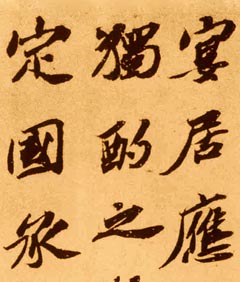 宴居應
獨酌之
定國